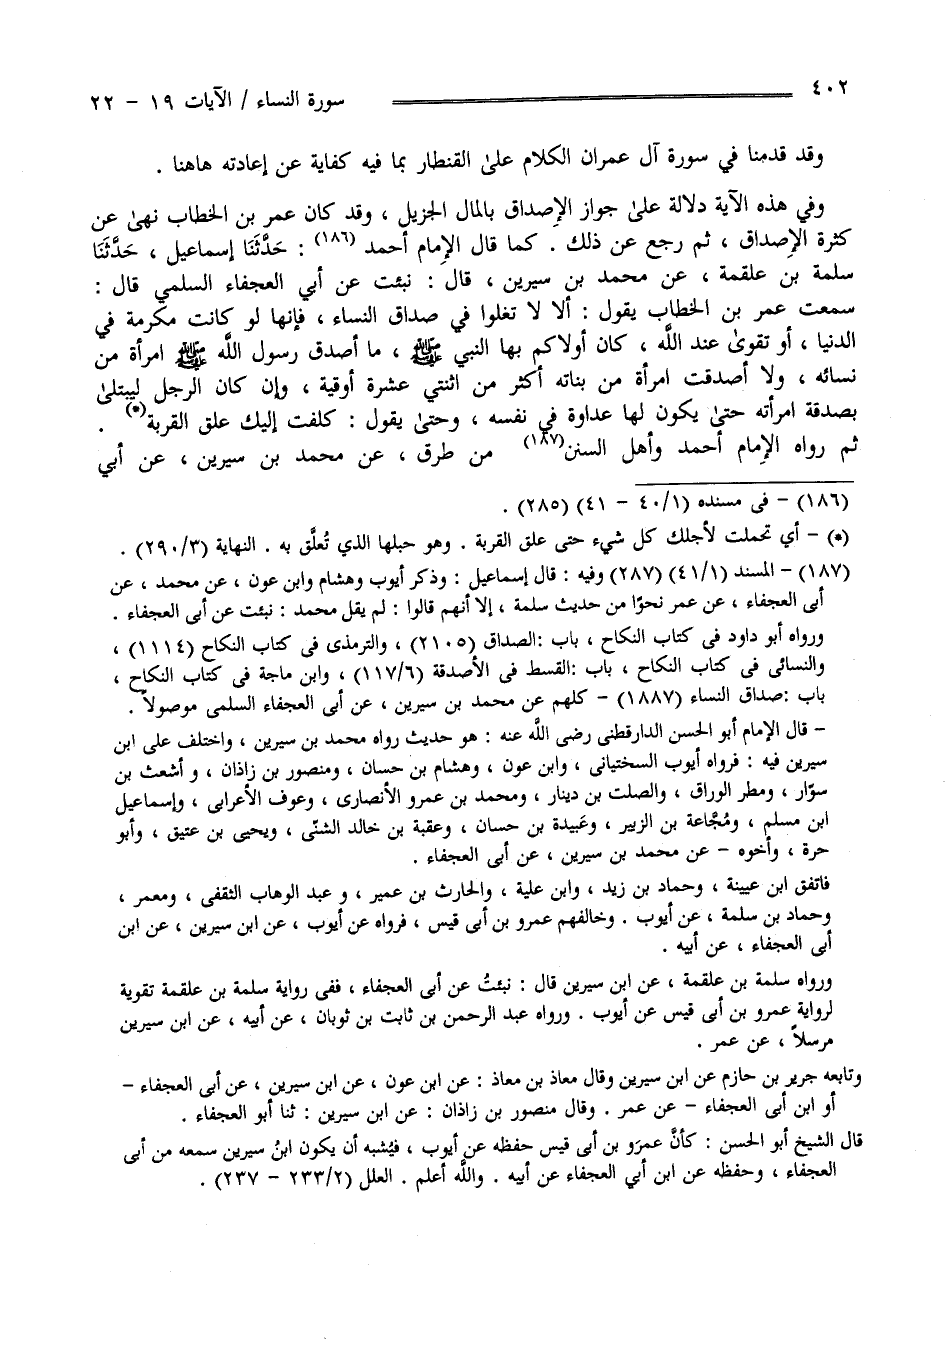 ٤٠٢
سورة النساء / الآيات ١٩ - ٢٢
وقد قدمنا في سورة آل عمران الكلام علىٰ القنطار بما فيه كفاية عن إعادته هاهنا .
وفي هذه الآية دلالة علىٰ جواز الإصداق بالمال الجزيل ، وقد كان عمر بن الخطاب نهىٰ عن
كثرة الإصداق ، ثم رجع عن ذلك . كما قال الإمام أحمد (١٨٦) : حَدَّثَنَا إسماعيل ، حَدَّثَنَا
سلمة بن علقمة ، عن محمد بن سيرين ، قال : نبئت عن أبي العجفاء السلمي قال :
سمعت عمر بن الخطاب يقول : ألا لا تغلوا في صداق النساء ، فإنها لو كانت مكرمة في
الدنيا ، أو تقوىٰ عند اللَّه ، كان أولاكم بها النبي ﷺ ، ما أصدق رسول اللَّه ﷺ امرأة من
نسائه ، ولا أصدقت امرأة من بناته أكثر من اثنتي عشرة أوقية ، وإن كان الرجل ليبتلىٰ
بصدقة امرأته حتىٰ يكون لها عداوة في نفسه ، وحتىٰ يقول : كلفت إليك علق القربة(*) .
ثم رواه الإمام أحمد وأهل السنن(١٨٧) من طرق ، عن محمد بن سيرين ، عن أبي
(١٨٦) - فى مسنده (٤٠/١ - ٤١) (٢٨٥) .
(*) - أي تحملت لأجلك كل شيء حتى علق القربة . وهو حبلها الذي تُعلَّق به . النهاية (٢٩٠/٣) .
(١٨٧) - المسند (٤١/١) (٢٨٧) وفيه : قال إسماعيل : وذكر أيوب وهشام وابن عون ، عن محمد ، عن
أبى العجفاء ، عن عمر نحوًا من حديث سلمة ، إلا أنهم قالوا : لم يقل محمد : نبئت عن أبى العجفاء .
ورواه أبو داود فى كتاب النكاح ، باب :الصداق (٢١٠٥) ، والترمذى فى كتاب النكاح (١١١٤) ،
والنسائى فى كتاب النكاح ، باب :القسط فى الأصدقة (١١٧/٦) ، وابن ماجة فى كتاب النكاح ،
باب :صداق النساء (١٨٨٧) - كلهم عن محمد بن سيرين ، عن أبى العجفاء السلمى موصولاً .
- قال الإمام أبو الحسن الدارقطنى رضى اللَّه عنه : هو حديث رواه محمد بن سيرين ، واختلف على ابن
سيرين فيه : فرواه أيوب السختيانى ، وابن عون ، وهشام بن حسان ، ومنصور بن زاذان ، و أشعث بن
سوّار ، ومطر الوراق ، والصلت بن دينار ، ومحمد بن عمرو الأنصارى ، وعوف الأعرابى ، وإسماعيل
ابن مسلم ، ومُجَّاعة بن الزبير ، وعَبيدة بن حسان ، وعقبة بن خالد الشنّى ، ويحيى بن عتيق ، وأبو
حرة ، وأخوه - عن محمد بن سيرين ، عن أبى العجفاء .
فاتفق ابن عيينة ، وحماد بن زيد ، وابن علية ، والحارث بن عمير ، و عبد الوهاب الثقفى ، ومعمر ،
وحماد بن سلمة ، عن أيوب . وخالفهم عمرو بن أبى قيس ، فرواه عن أيوب ، عن ابن سيرين ، عن ابن
أبى العجفاء ، عن أبيه .
ورواه سلمة بن علقمة ، عن ابن سيرين قال : نبئتُ عن أبى العجفاء ، ففى رواية سلمة بن علقمة تقوية
لرواية عمرو بن أبى قيس عن أيوب . ورواه عبد الرحمن بن ثابت بن ثوبان ، عن أبيه ، عن ابن سيرين
مرسلاً ، عن عمر .
وتابعه جرير بن حازم عن ابن سيرين وقال معاذ بن معاذ : عن ابن عون ، عن ابن سيرين ، عن أبى العجفاء -
أو ابن أبى العجفاء - عن عمر . وقال منصور بن زاذان : عن ابن سيرين : ثنا أبو العجفاء .
قال الشيخ أبو الحسن : كأنَّ عمرَو بن أبى قيس حفظه عن أيوب ، فيُشبه أن يكون ابنُ سيرين سمعه من أبى
العجفاء ، وحفظه عن ابن أبي العجفاء عن أبيه . واللَّه أعلم . العلل (٢٣٣/٢ - ٢٣٧) .